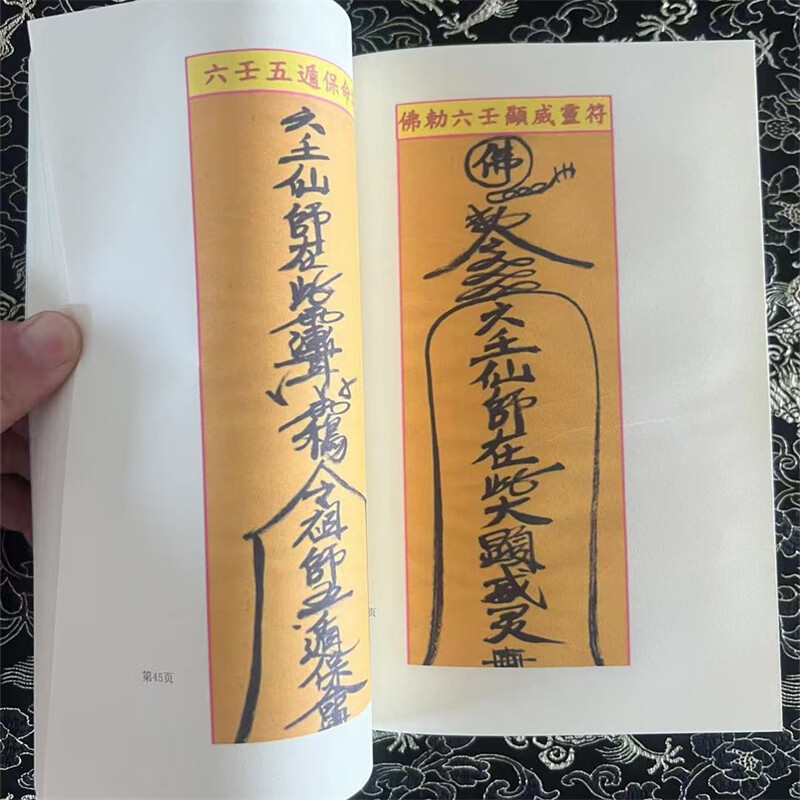 六壬五遁保命
六壬仙師在此
令祖師五遁保命
第45页
佛勅六壬顯威靈符
佛
勅令
六壬仙師在此大顯威灵
页